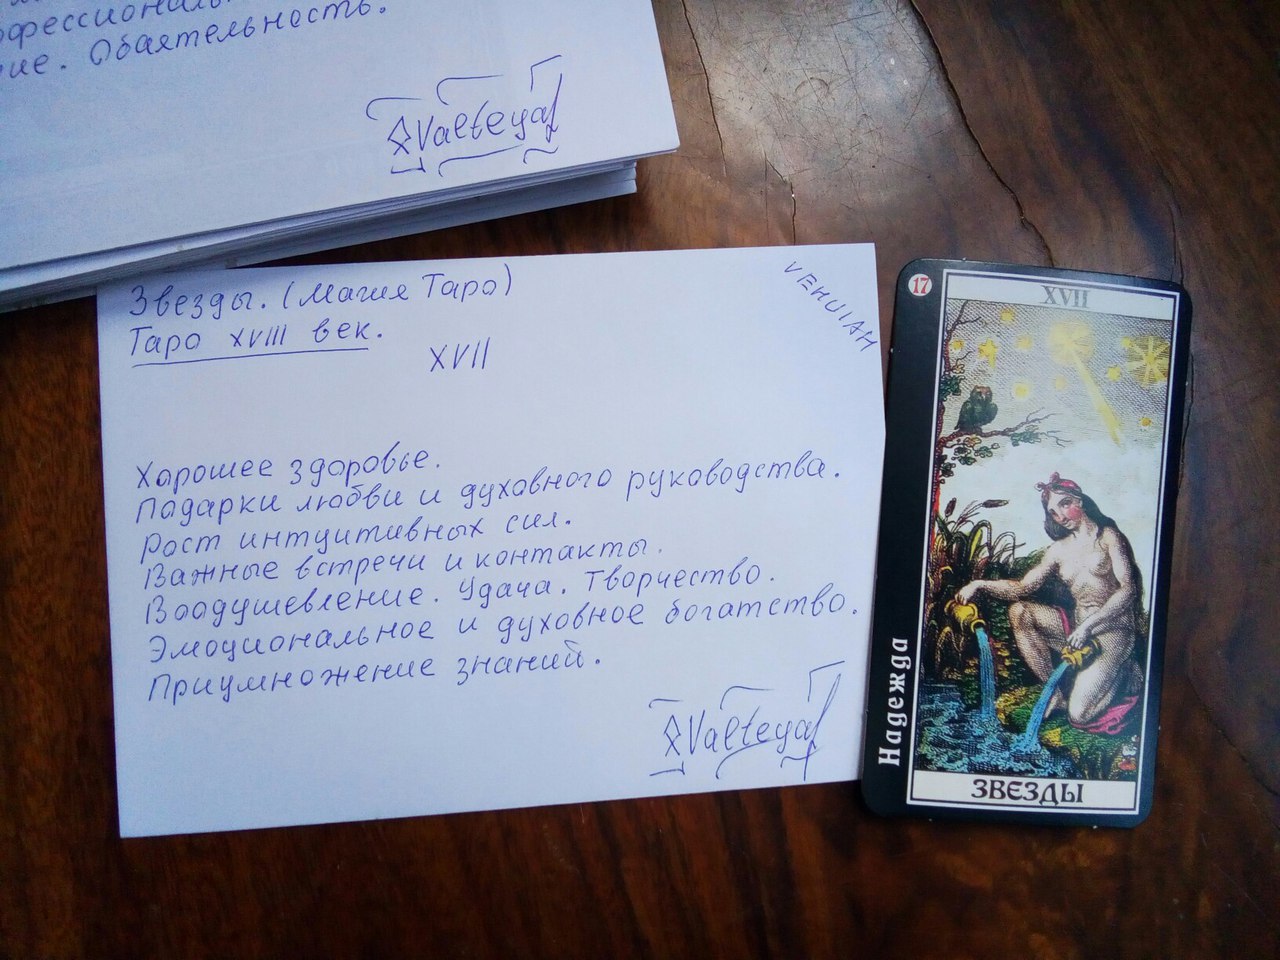 офессиональ
ие. Обаятельность.
Valteyaf
Звезды. (Магия Таро)
Таро XVIII век.
XVII
VEHUIAH
Хорошее здоровье.
Подарки любви и духовного руководства.
Рост интуитивных сил.
Важные встречи и контакты.
Воодушевление. Удача. Творчество.
Эмоциональное и духовное богатство.
Приумножение знаний.
Valteyaf
17
XVII
Надежда
ЗВЕЗДЫ